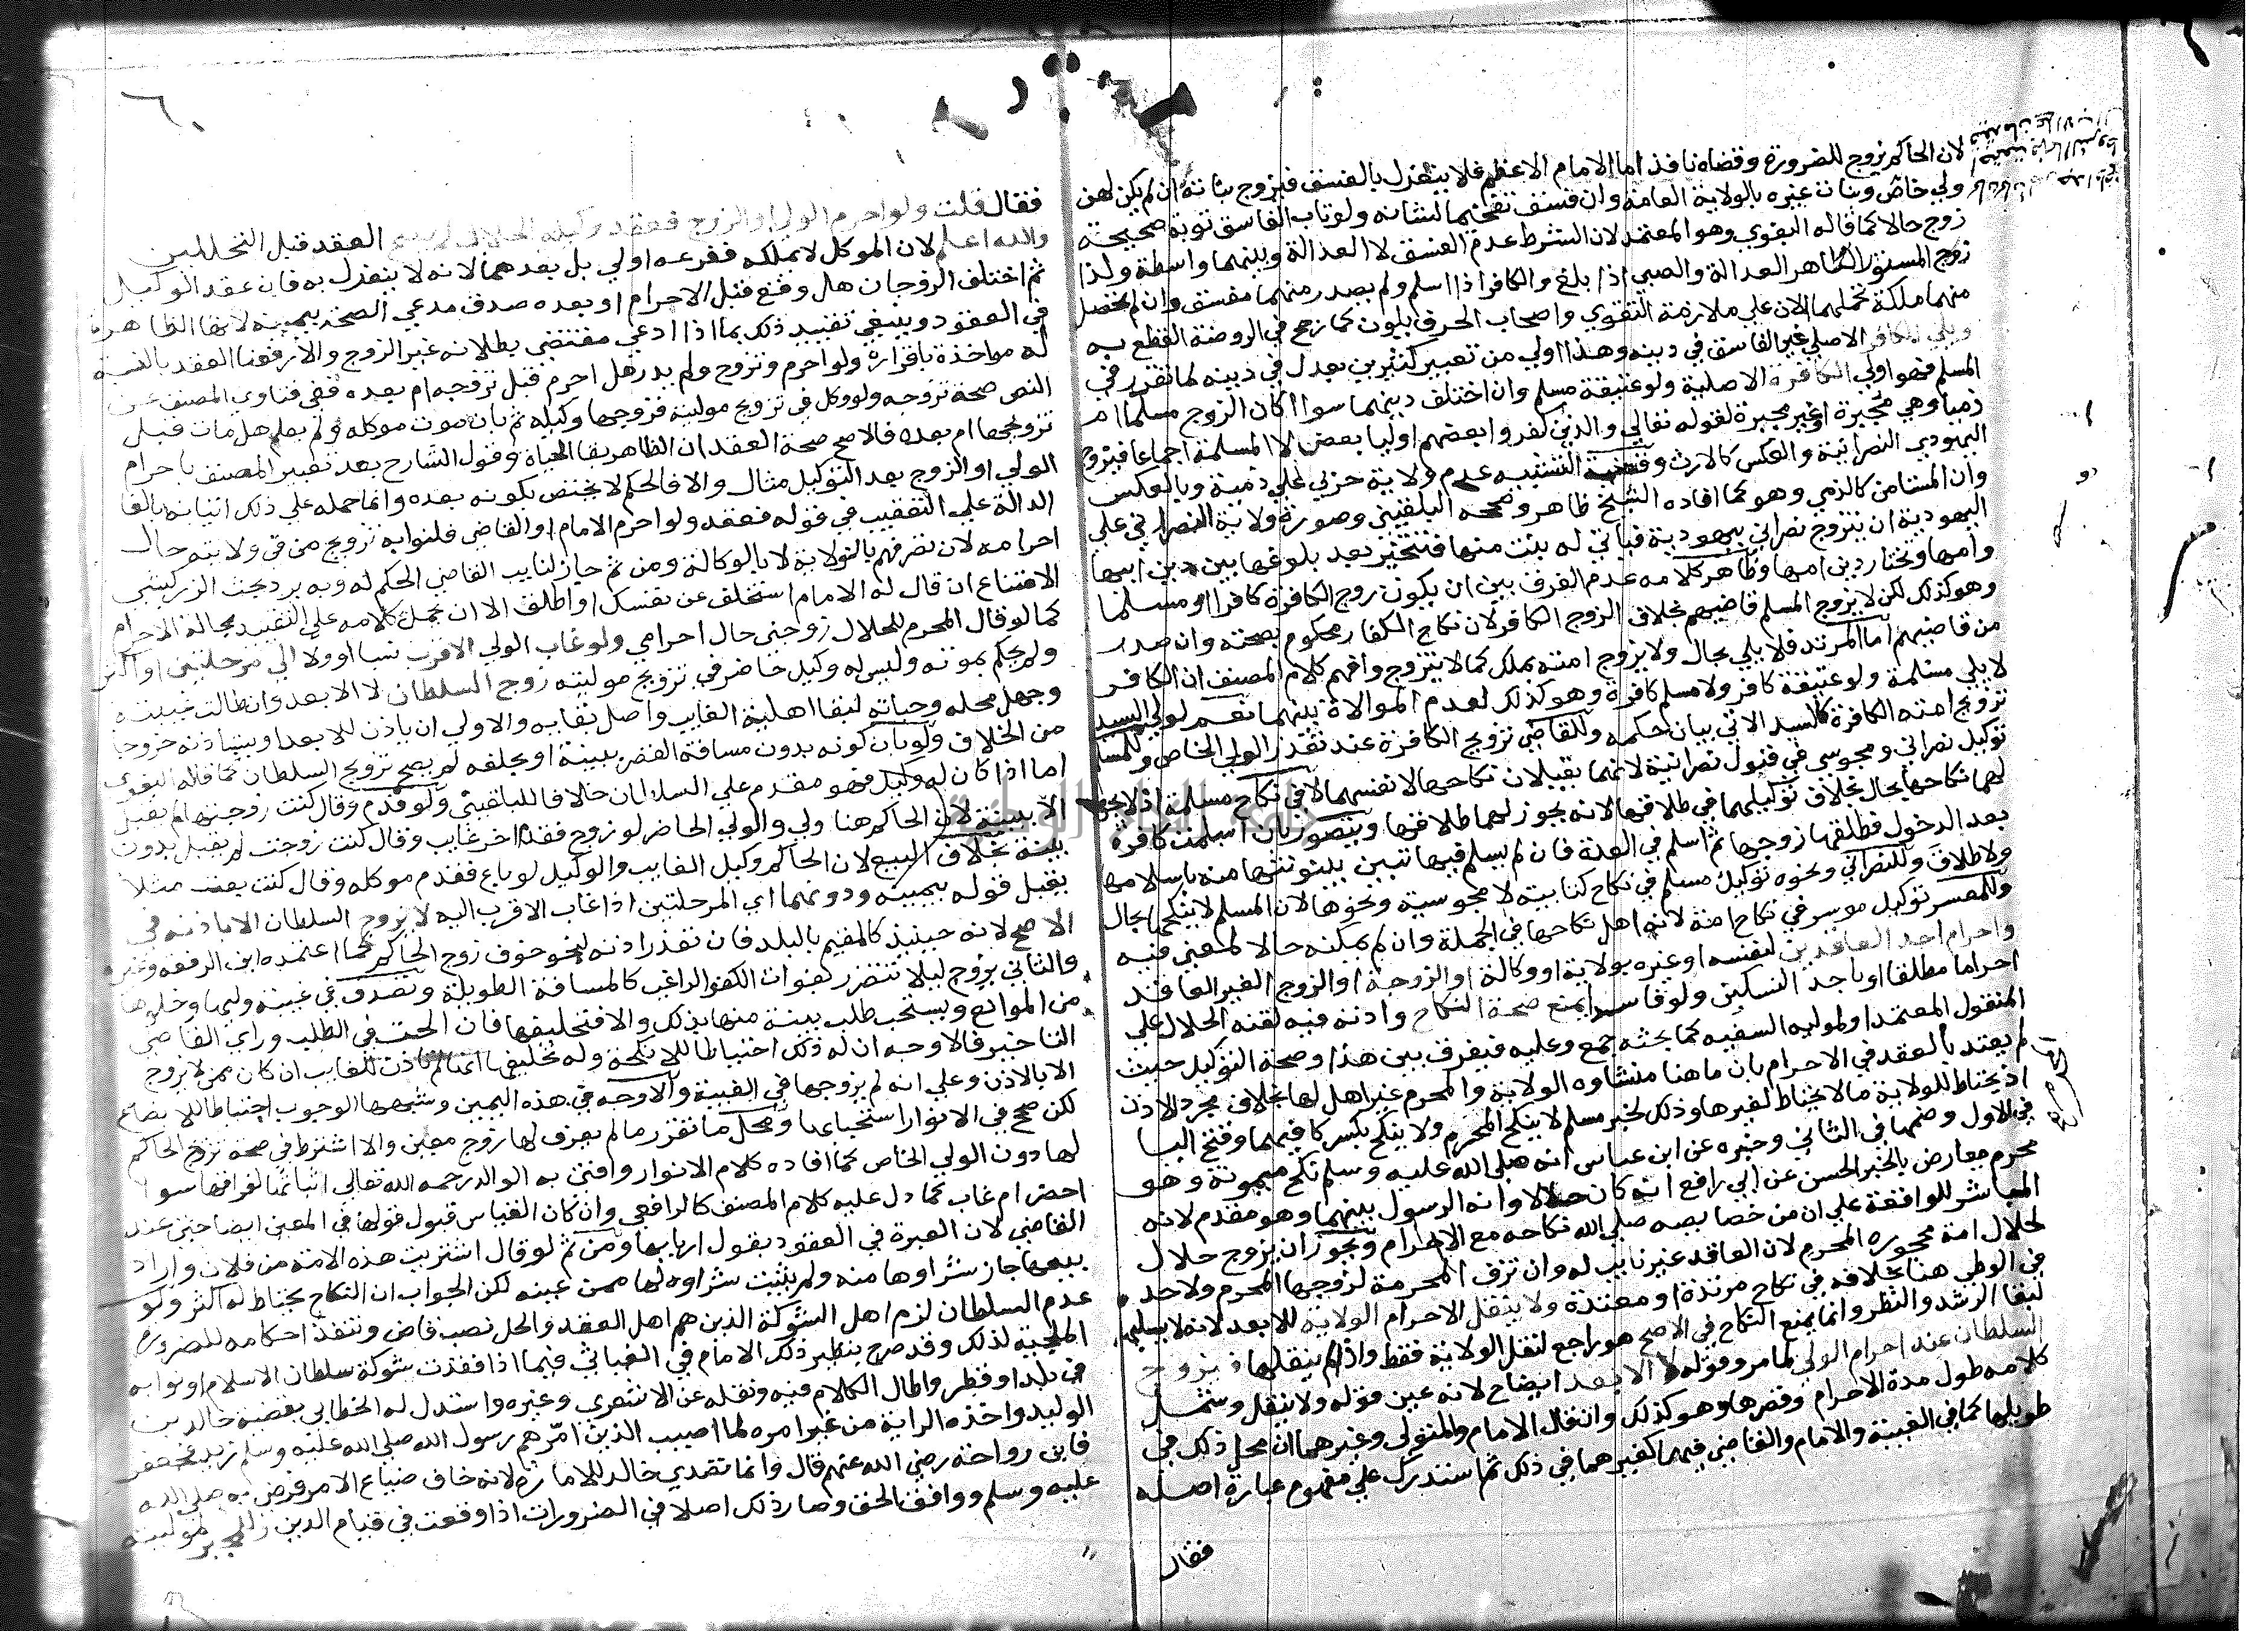 لان الحاكم يزوج للضرورة وقضاه نافذ اما الامام الاعظم فلا ينعزل بالفسق فيزوج بناته ان لم يكن لهن
ولي خاص وبنات غيره بالولاية العامة وان فسق تفخيما لشانه ولو تاب الفاسق توبة صحيحة
زوج حالا كما قاله البغوي وهو المعتمد لان الشرط عدم الفسق لا العدالة وبينهما واسطة ولذا
زوج المستور الظاهر العدالة والصبي اذا بلغ والكافر اذا اسلم ولم يصدر منهما مفسق وان لم يحصل
منهما ملكة تحملهما الان علي ملازمة التقوي واصحاب الحرف يلون كما رجح في الروضة القطع به
ويلي الكافر الاصلي غير الفاسق في دينه وهذا اولي من تعبير كثيرين بعدل في دينه لما تقرر في
المسلم فهو اولي الكافرة الاصلية ولو عتيقة مسلم وان اختلف دينهما سوا اكان الزوج مسلما ام
ذميا وهي مجبرة او غير مجبرة لقوله تعالي والذين كفروا بعضهم اوليا بعض لا المسلمة اجماعا فيزوج
اليهودي النصرانية والعكس كالارث وقضية التشبيه عدم ولاية حربي علي ذمية وبالعكس
وان المستامن كالذمي وهو كما افاده الشيخ ظاهر وصححه البلقيني وصورة ولاية النصراني علي
اليهودية ان يتزوج نصراني يهودية فياتي له بنت منها فتتخير بعد بلوغها بين دين ابيها
وامها وتختار دين امها وظاهر كلامه عدم الفرق بين ان يكون زوج الكافرة كافرا او مسلما
وهو كذلك لكن لا يزوج المسلم قاضيهم بخلاف الزوج الكافر لان نكاح الكفار محكوم بصحته وان صدر
من قاضيهم اما المرتد فلا يلي بحال ولا يزوج امته بملك كما لا يتزوج وافهم كلام المصنف ان الكافر
لا يلي مسلمة ولو عتيقة كافر ولا مسلم كافرة وهو كذلك لعدم الموالاة بينهما نعم لولي السيد
تزويج امته الكافرة كالسيد الاتي بيان حكمه وللقاضي تزويج الكافرة عند تعذر الولي الخاص وللمسلم
توكيل نصراني ومجوسي في قبول نصرانية لانهما يقبلان نكاحها لانفسهما لا في نكاح مسلمة اذ لا يجوز
لهما نكاحها بحال بخلاف توكيلهما في طلاقها لانه يجوز لهما طلاقها ويتصور بان اسلمت كافرة
بعد الدخول فطلقها زوجها ثم اسلم في العدة فان لم يسلم فيها تبين بينونتها منه باسلامها
ولا طلاق وللنصراني ونحوه توكيل مسلم في نكاح كتابية لا مجوسية ونحوها لان المسلم لا ينكحها بحال
وللمعسر توكيل موسر في نكاح امة لانه اهل نكاحها في الجملة وان لم يمكنه حالا لمعني فيه
واحرام احد العاقدين لنفسه او غيره بولاية او وكالة او الزوجة او الزوج الغير العاقد
احراما مطلقا او باحد النسكين ولو فاسدا يمنع صحة النكاح واذنه فيه لقنه الحلال علي
المنقول المعتمد او لموليه السفيه كما بحثه جمع وعليه فيفرق بين هذا وصحة التوكيل حيث
لم يعتد بالعقد في الاحرام بان ما هنا منشاوه الولاية والمحرم غير اهل لها بخلاف مجرد الاذن
اذ يحتاط للولاية ما لا يحتاط لغيرها وذلك لخبر مسلم لا ينكح المحرم ولا ينكح بكسر كافيهما وفتح اليا
في الاول وضمها في الثاني وخبره عن ابن عباس انه صلي الله عليه وسلم نكح ميمونة وهو
محرم معارض بالخبر الحسن عن ابي رافع انه كان حلالا وانه الرسول بينهما وهو مقدم لانه
المباشر للواقعة علي ان من خصايصه صلي الله نكاحه مع الاحرام ويجوز ان يزوج حلال
لحلال امة محجوره المحرم لان العاقد غير نايب له وان تزف المحرمة لزوجها المحرم ولا حد
في الوطي هنا بخلافه في نكاح مرتدة او معتدة ولا ينقل الاحرام الولاية للابعد لانه لا يسلبها
لبقا الرشد والنظر وانما يمنع النكاح في الاصح هو راجع لنقل الولاية فقط واذا لم ينقلها فيزوج
السلطان عند احرام الولي لما مر وقوله لا الابعد ايضاح لانه عين قوله ولا ينقل وشمل
كلامه طول مدة الاحرام وقصرها وهو كذلك وان قال الامام والمتولي وغيرهما ان محل ذلك في
طويلها كما في الغيبة والامام والقاضي فيهما كغيرهما في ذلك ثم استدرك علي مفهوم عبارة اصله
فقال
فقال قلت ولو احرم الولي او الزوج فعقد وكيله الحلال لم يصح العقد قبل التحللين
والله اعلم لان الموكل لا يملكه ففرعه اولي بل بعدهما لانه لا ينعزل به فان عقد الوكيل
ثم اختلف الزوجان هل وقع قبل الاحرام او بعده صدق مدعي الصحة بيمينه لانها الظاهرة
في العقود وينبغي تقييد ذلك بما اذا ادعي مقتضي بطلانه غير الزوج والا رفعنا العقد بالنسبة
له مواخذة باقراره ولو احرم وتزوج ولم يدر هل احرم قبل تزوجه ام بعده ففي فتاوي المصنف عن
النص صحة تزوجه ولو وكل في تزويج موليته فزوجها وكيله ثم بان موت موكله ولم يعلم هل مات قبل
تزويجها ام بعده فالاصح صحة العقد ان الظاهر بقا الحياة وقول الشارح بعد تعبير المصنف باحرام
الولي او الزوج بعد التوكيل مثال والا فالحكم لا يختص بكونه بعده وانما حمله علي ذلك اتيانه بالفا
الدالة علي التعقيب في قوله فعقد ولو احرم الامام او القاضي فلنوابه تزويج من في ولايته حال
احرامه لان تصرفهم بالولاية لا بالوكالة ومن ثم جاز لنايب القاضي الحكم له وبه يرد بحث الزركشي
الامتناع ان قال له الامام استخلف عن نفسك او اطلق الا ان يحمل كلامه علي التقييد بحالة الاحرام
كما لو قال المحرم للحلال زوجني حال احرامي ولو غاب الولي الاقرب نسبا او ولا الي مرحلتين او اكثر
ولم يحكم بموته وليس له وكيل حاضر في تزويج موليته زوج السلطان لا الابعد وان طالت غيبته
وجهل محله وحياته لبقا اهلية الغايب واصل بقايه والاولي ان ياذن للابعد او يستاذنه خروجا
من الخلاف ولو بان كونه بدون مسافة القصر ببينة او بحلفه لم يصح تزويج السلطان كما قاله البغوي
اما اذا كان له وكيل فهو مقدم علي السلطان خلافا للبلقيني ولو قدم وقال كنت زوجتها لم يقبل
الا ببينة لان الحاكم هنا ولي والولي الحاضر لو زوج فقدم اخر غايب وقال كنت زوجت لم يقبل بدون
بينة بخلاف البيع لان الحاكم وكيل الغايب والوكيل لو باع فقدم موكله وقال كنت بعت مثلا
يقبل قوله بيمينه ودونهما اي المرحلتين اذا غاب الاقرب اليه لا يزوج السلطان الا باذنه في
الاصح لانه حينيذ كالمقيم بالبلد فان تعذر اذنه لنحو خوف زوج الحاكم كما اعتمده ابن الرفعة وغيره
والثاني يزوج ليلا تتضرر بفوات الكفو الراغب كالمسافة الطويلة وتصدق في غيبة وليها وخلوها
من الموانع ويستحب طلب بينة منها بذلك والا فتحليفها فان الحت في الطلب وراي القاضي
التاخير فالاوجه ان له ذلك احتياطا للانكحة وله تحليفها انها لم تاذن للغايب ان كان ممن لا يزوج
الا بالاذن وعلي انه لم يزوجها في الغيبة والاوجه في هذه اليمين وشبهها الوجوب احتياطا للابضاع
لكن صحح في الانوار استحبابها ومحل ما تقرر ما لم يعرف لها زوج معين والا اشترط في صحة تزويج الحاكم
لها دون الولي الخاص كما افاده كلام الانوار وافتي به الوالد رحمه الله تعالي اثباتها لفراقها سوا
احضر ام غاب كما دل عليه كلام المصنف كالرافعي وان كان القياس قبول قولها في المعين ايضا حتي عند
القاضي لان العبرة في العقود بقول اربابها ومن ثم لو قال اشتريت هذه الامة من فلان واراد
بيعها جاز شراوها منه ولم يثبت شراوه لها ممن عينه لكن الجواب ان النكاح يحتاط له اكثر ولو
عدم السلطان لزم اهل الشوكة الذين هم اهل العقد والحل نصب قاض وتنفذ احكامه للضرورة
الملجية لذلك وقد صرح بنظير ذلك الامام في الغياثي فيما اذا فقدت شوكة سلطان الاسلام او نوابه
في بلد او قطر واطال الكلام فيه ونقله عن الاشعري وغيره واستدل له الخطابي بقضية خالد بن
الوليد واخذه الراية من غير امره لما اصيب الذين امرهم رسول الله صلي الله عليه وسلم زيد فجعفر
فابن رواحة رضي الله عنهم قال وانما تصدي خالد للامارة لانه خاف ضياع الامر فرضي به صلي الله
عليه وسلم ووافق الحق وصار ذلك اصلا في الضرورات اذا وقعت في قيام الدين وللمجبر لموليته